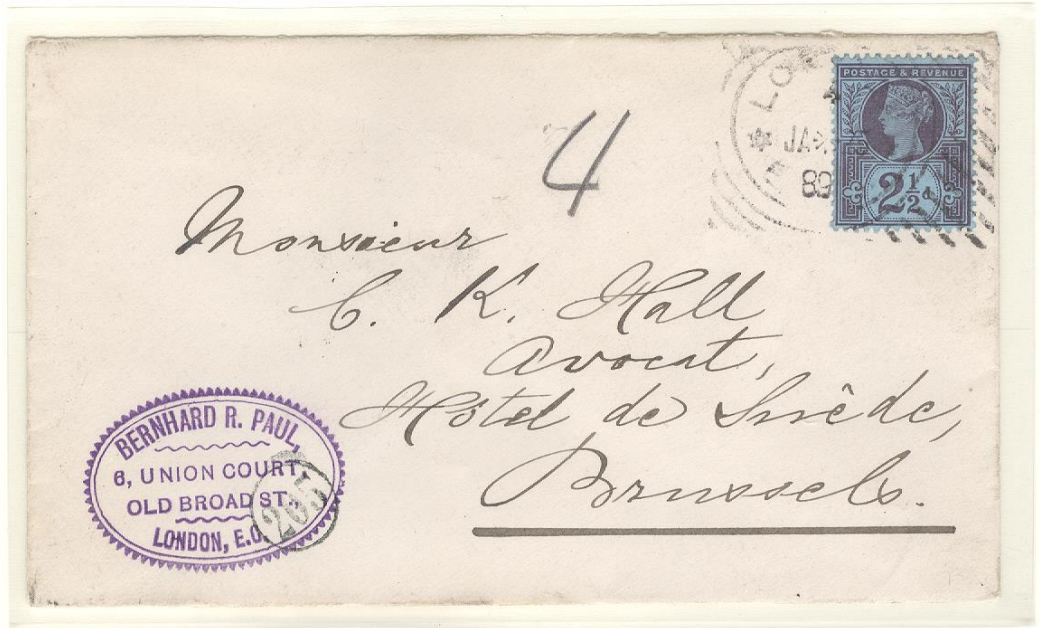 4
LO
JA
89
POSTAGE & REVENUE
2½d
Monsieur
C. K. Hall
Avocat,
Hôtel de Suède,
Brussels.
BERNHARD R. PAUL,
6, UNION COURT,
OLD BROAD ST.,
LONDON, E.C.
265